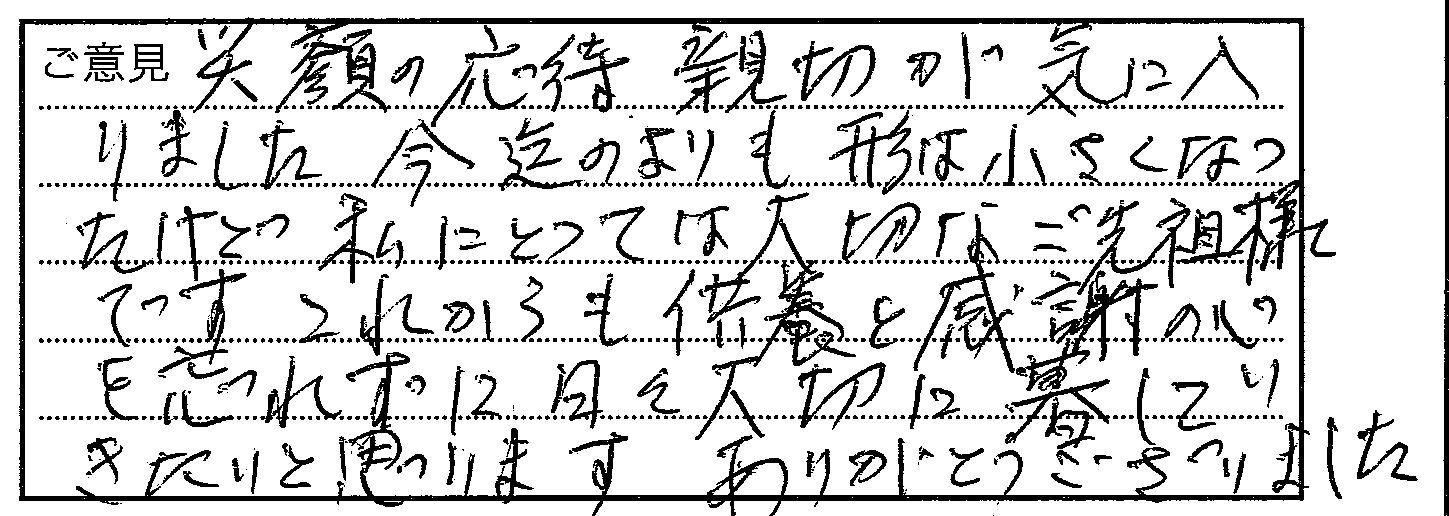 ご意見 笑顔の応待 親切が気に入
りました 今迄のよりも形は小さくなっ
たけど私にとっては大切なご先祖様て
です これからも供養と感謝の心
を忘れずに日々大切に暮してい
きたいと思います ありがとうございました